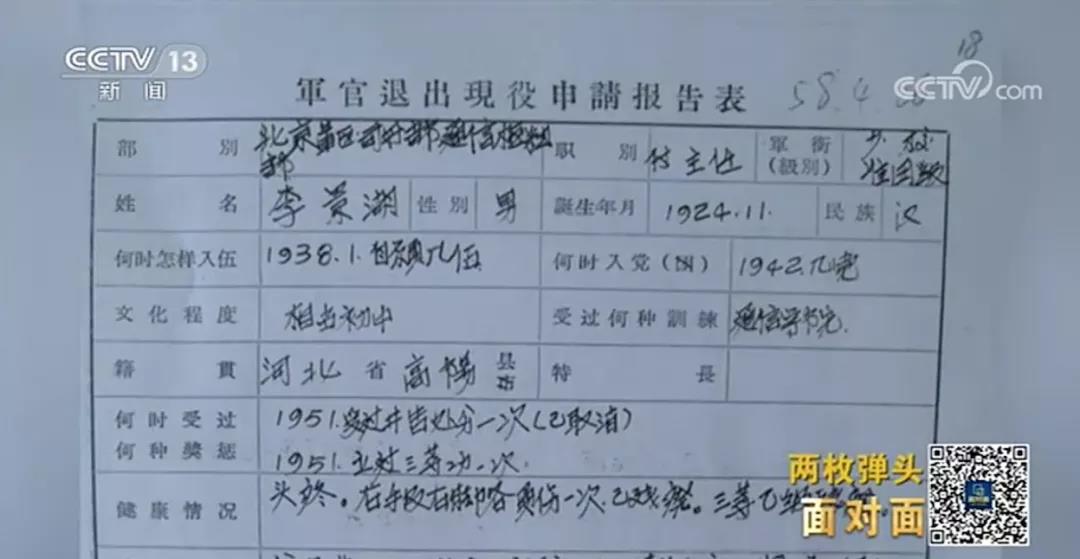 CCTV 13
新闻
18
CCTV com
軍官退出現役申請报告表 58.4.
部別 北京軍区司令部通信 部 职別 付主任 軍銜(級別) 少校 准团級
姓名 李景湖 性別 男 誕生年月 1924.11. 民族 汉
何时怎样入伍 1938.1.自愿入伍 何时入党(团) 1942.入党
文化程度 相当初中 受过何种訓練 通信学校
籍貫 河北省高陽县市 特長
何时受过何种獎惩 1951.受过警告处分一次(已取消)
1951.立过三等功一次.
健康情况 头疼。右手及右 各负伤一次.已残癈。三等乙级
两枚弹头
面对面